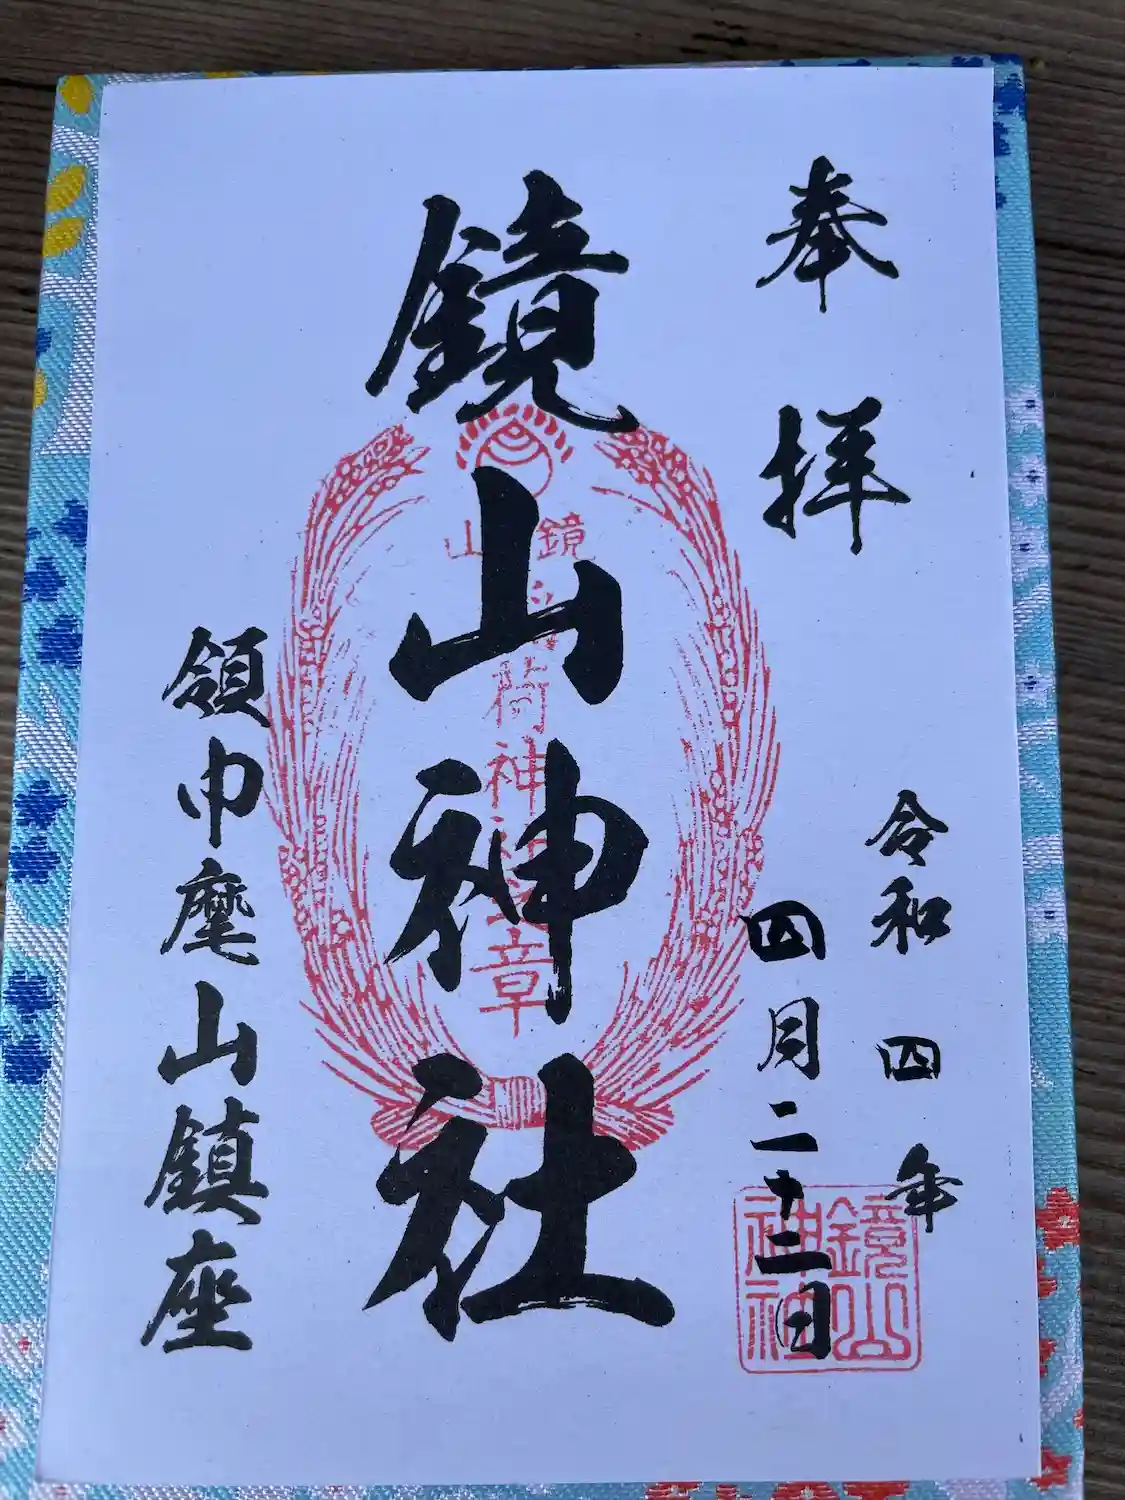 奉拝
令和四年
四月二十二日
鏡山神社
領巾麾山鎮座
鏡山
稲荷神社之章
鏡山
神社